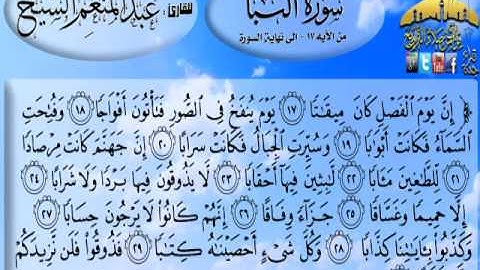 سورة النبأ
من الآيه ١٧ - إلى نهاية السورة
للقارئ: عبد المنعم الشيخ
﴿ إِنَّ يَوْمَ الْفَصْلِ كَانَ مِيقَاتًا ١٧ يَوْمَ يُنفَخُ فِي الصُّورِ فَتَأْتُونَ أَفْوَاجًا ١٨ وَفُتِحَتِ
السَّمَاءُ فَكَانَتْ أَبْوَابًا ١٩ وَسُيِّرَتِ الْجِبَالُ فَكَانَتْ سَرَابًا ٢٠ إِنَّ جَهَنَّمَ كَانَتْ مِرْصَادًا
٢١ لِّلطَّاغِينَ مَـَٔابًا ٢٢ لَّابِثِينَ فِيهَا أَحْقَابًا ٢٣ لَّا يَذُوقُونَ فِيهَا بَرْدًا وَلَا شَرَابًا ٢٤
إِلَّا حَمِيمًا وَغَسَّاقًا ٢٥ جَزَاءً وِفَاقًا ٢٦ إِنَّهُمْ كَانُوا لَا يَرْجُونَ حِسَابًا ٢٧
وَكَذَّبُوا بِـَٔايَاتِنَا كِذَّابًا ٢٨ وَكُلَّ شَيْءٍ أَحْصَيْنَاهُ كِتَابًا ٢٩ فَذُوقُوا فَلَن نَّزِيدَكُمْ